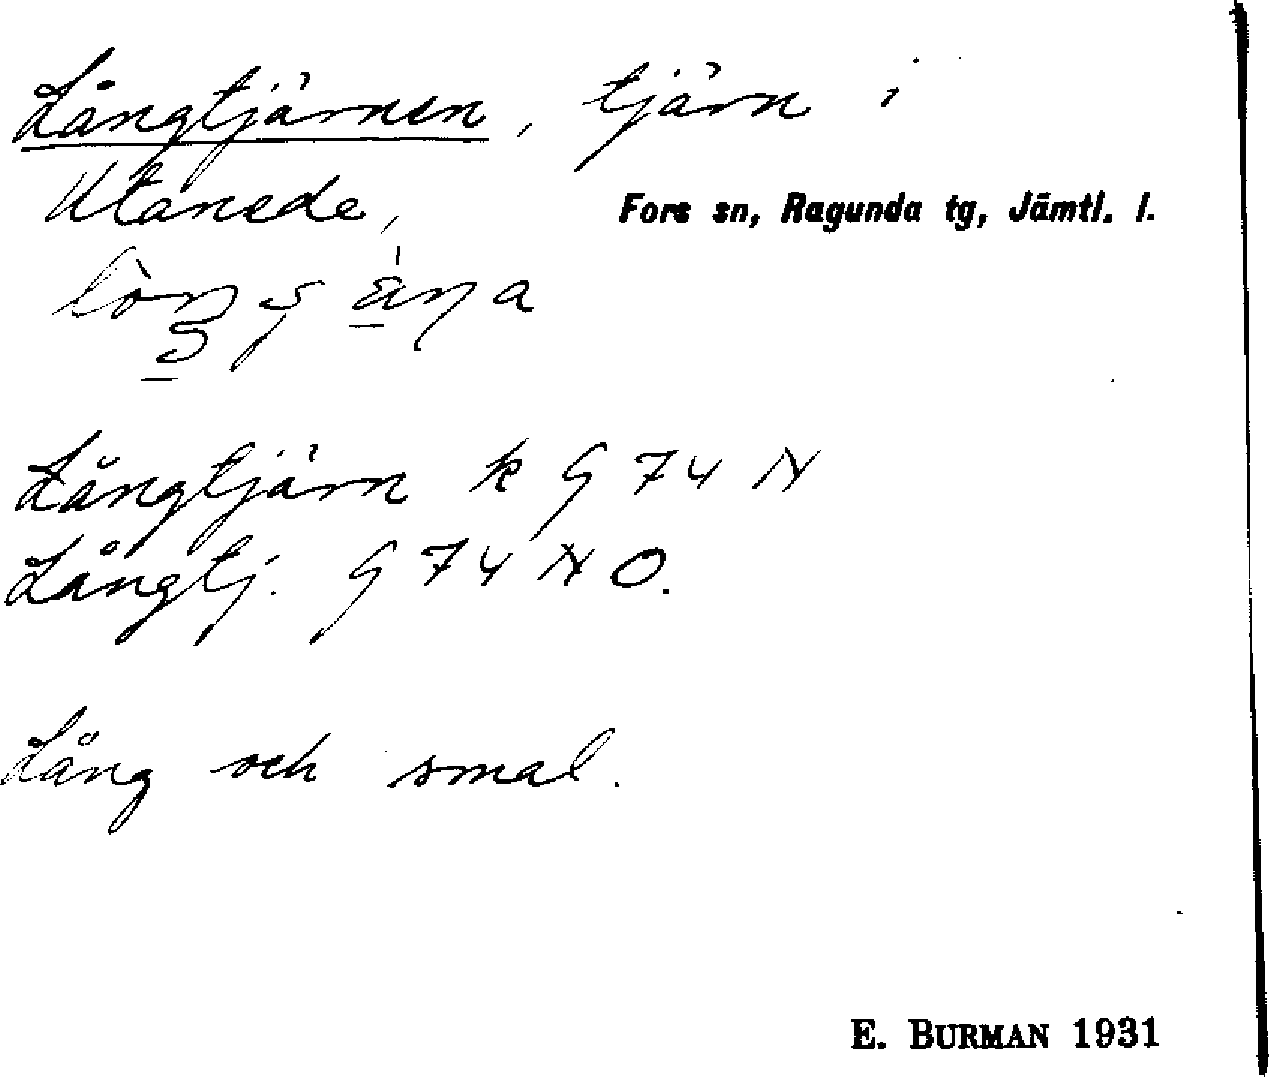 Långtjärnen, tjärn i
Utanede, Fors sn, Ragunda tg, Jämtl. l.
Långtjärn k G 74 N
Långtj. G 74 NO.
Lång och smal.
E. BURMAN 1931